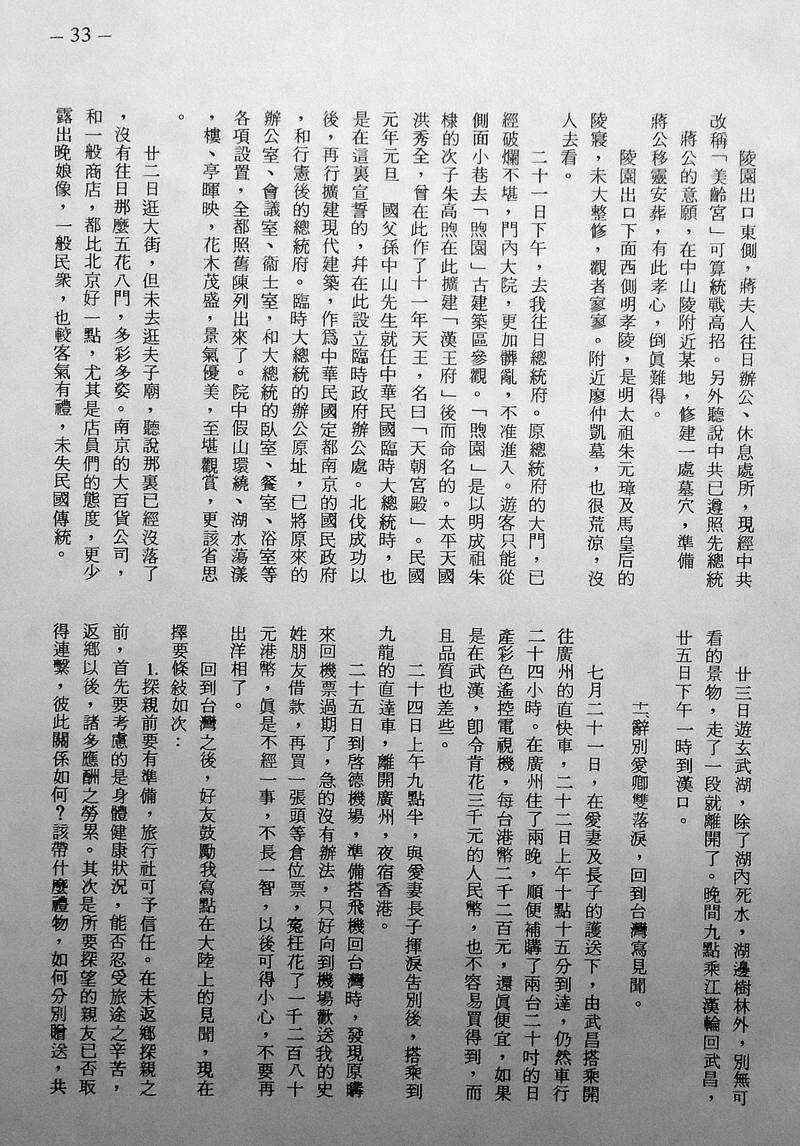 — 33 —
陵園出口東側，蔣夫人往日辦公、休息處所，現經中共
改稱「美齡宮」可算統戰高招。另外聽說中共已遵照先總統
蔣公的意願，在中山陵附近某地，修建一處墓穴，準備
蔣公移靈安葬，有此孝心，倒眞難得。
陵園出口下面西側明孝陵，是明太祖朱元璋及馬皇后的
陵寢，未大整修，觀者寥寥。附近廖仲凱墓，也很荒涼，沒
人去看。
二十一日下午，去我往日總統府。原總統府的大門，已
經破爛不堪，門內大院，更加髒亂，不准進入。遊客只能從
側面小巷去「煦園」古建築區參觀。「煦園」是以明成祖朱
棣的次子朱高煦在此擴建「漢王府」後而命名的。太平天國
洪秀全，曾在此作了十一年天王，名曰「天朝宮殿」。民國
元年元旦　國父孫中山先生就任中華民國臨時大總統時，也
是在這裏宣誓的，幷在此設立臨時政府辦公處。北伐成功以
後，再行擴建現代建築，作爲中華民國定都南京的國民政府
，和行憲後的總統府。臨時大總統的辦公原址，已將原來的
辦公室、會議室、衞士室，和大總統的臥室、餐室、浴室等
各項設置，全都照舊陳列出來了。院中假山環繞、湖水蕩漾
，樓、亭暉映，花木茂盛，景氣優美，至堪觀賞，更該省思
。
廿二日逛大街，但未去逛夫子廟，聽說那裏已經沒落了
，沒有往日那麼五花八門，多彩多姿。南京的大百貨公司，
和一般商店，都比北京好一點，尤其是店員們的態度，更少
露出晚娘像，一般民衆，也較客氣有禮，未失民國傳統。
廿三日遊玄武湖，除了湖內死水，湖邊樹林外，別無可
看的景物，走了一段就離開了。晚間九點乘江漢輪回武昌，
廿五日下午一時到漢口。
十二辭別愛卿雙落淚，回到台灣寫見聞。
七月二十一日，在愛妻及長子的護送下，由武昌搭乘開
往廣州的直快車，二十二日上午十點十五分到達，仍然車行
二十四小時。在廣州住了兩晚，順便補購了兩台二十吋的日
產彩色遙控電視機，每台港幣二千二百元，還眞便宜，如果
是在武漢，卽令肯花三千元的人民幣，也不容易買得到，而
且品質也差些。
二十四日上午九點半，與愛妻長子揮淚告別後，搭乘到
九龍的直達車，離開廣州，夜宿香港。
二十五日到啓德機場，準備搭飛機回台灣時，發現原購
來回機票過期了，急的沒有辦法，只好向到機場歡送我的史
姓朋友借款，再買一張頭等倉位票，寃枉花了一千二百八十
元港幣，眞是不經一事，不長一智，以後可得小心，不要再
出洋相了。
回到台灣之後，好友鼓勵我寫點在大陸上的見聞，現在
擇要條敍如次：
1.探親前要有準備，旅行社可予信任。在未返鄉探親之
前，首先要考慮的是身體健康狀況，能否忍受旅途之辛苦，
返鄉以後，諸多應酬之勞累。其次是所要探望的親友已否取
得連繫，彼此關係如何？該帶什麼禮物，如何分別贈送，共